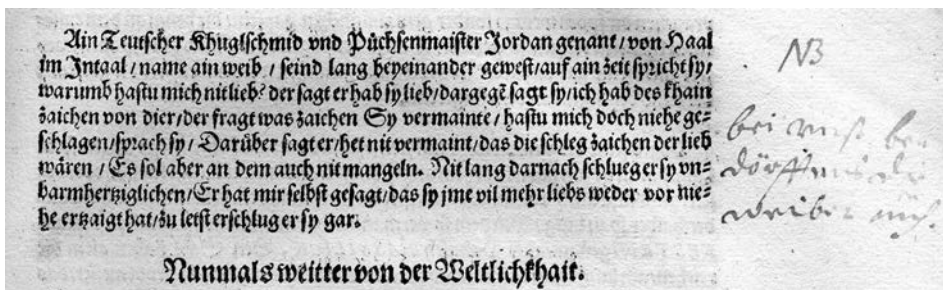 Ain Teutscher Khuglschmid vnd Püchsenmaister Jordan genant / von Haal
im Jntaal / name ain weib / seind lang beyeinander gewest / auf ain zeit spricht sy /
warumb hastu mich nit lieb? der sagt er hab sy lieb / dargegẽ sagt sy / ich hab des khain
zaichen von dier / der fragt was zaichen Sy vermainte / hastu mich doch niehe ge⸗
schlagen / sprach sy / Darüber sagt er / het nit vermaint / das die schleg zaichen der lieb
wären / Es sol aber an dem auch nit mangeln. Nit lang darnach schlueg er sy vn⸗
barmhertziglichen / Er hat mir selbst gesagt / das sy jme vil mehr liebs weder vor nie⸗
he ertzaigt hat / zu letst erschlug er sy gar.
NB
bei
dörfften
weiber auch.
Nunmals weitter von der Weltlichkhait.